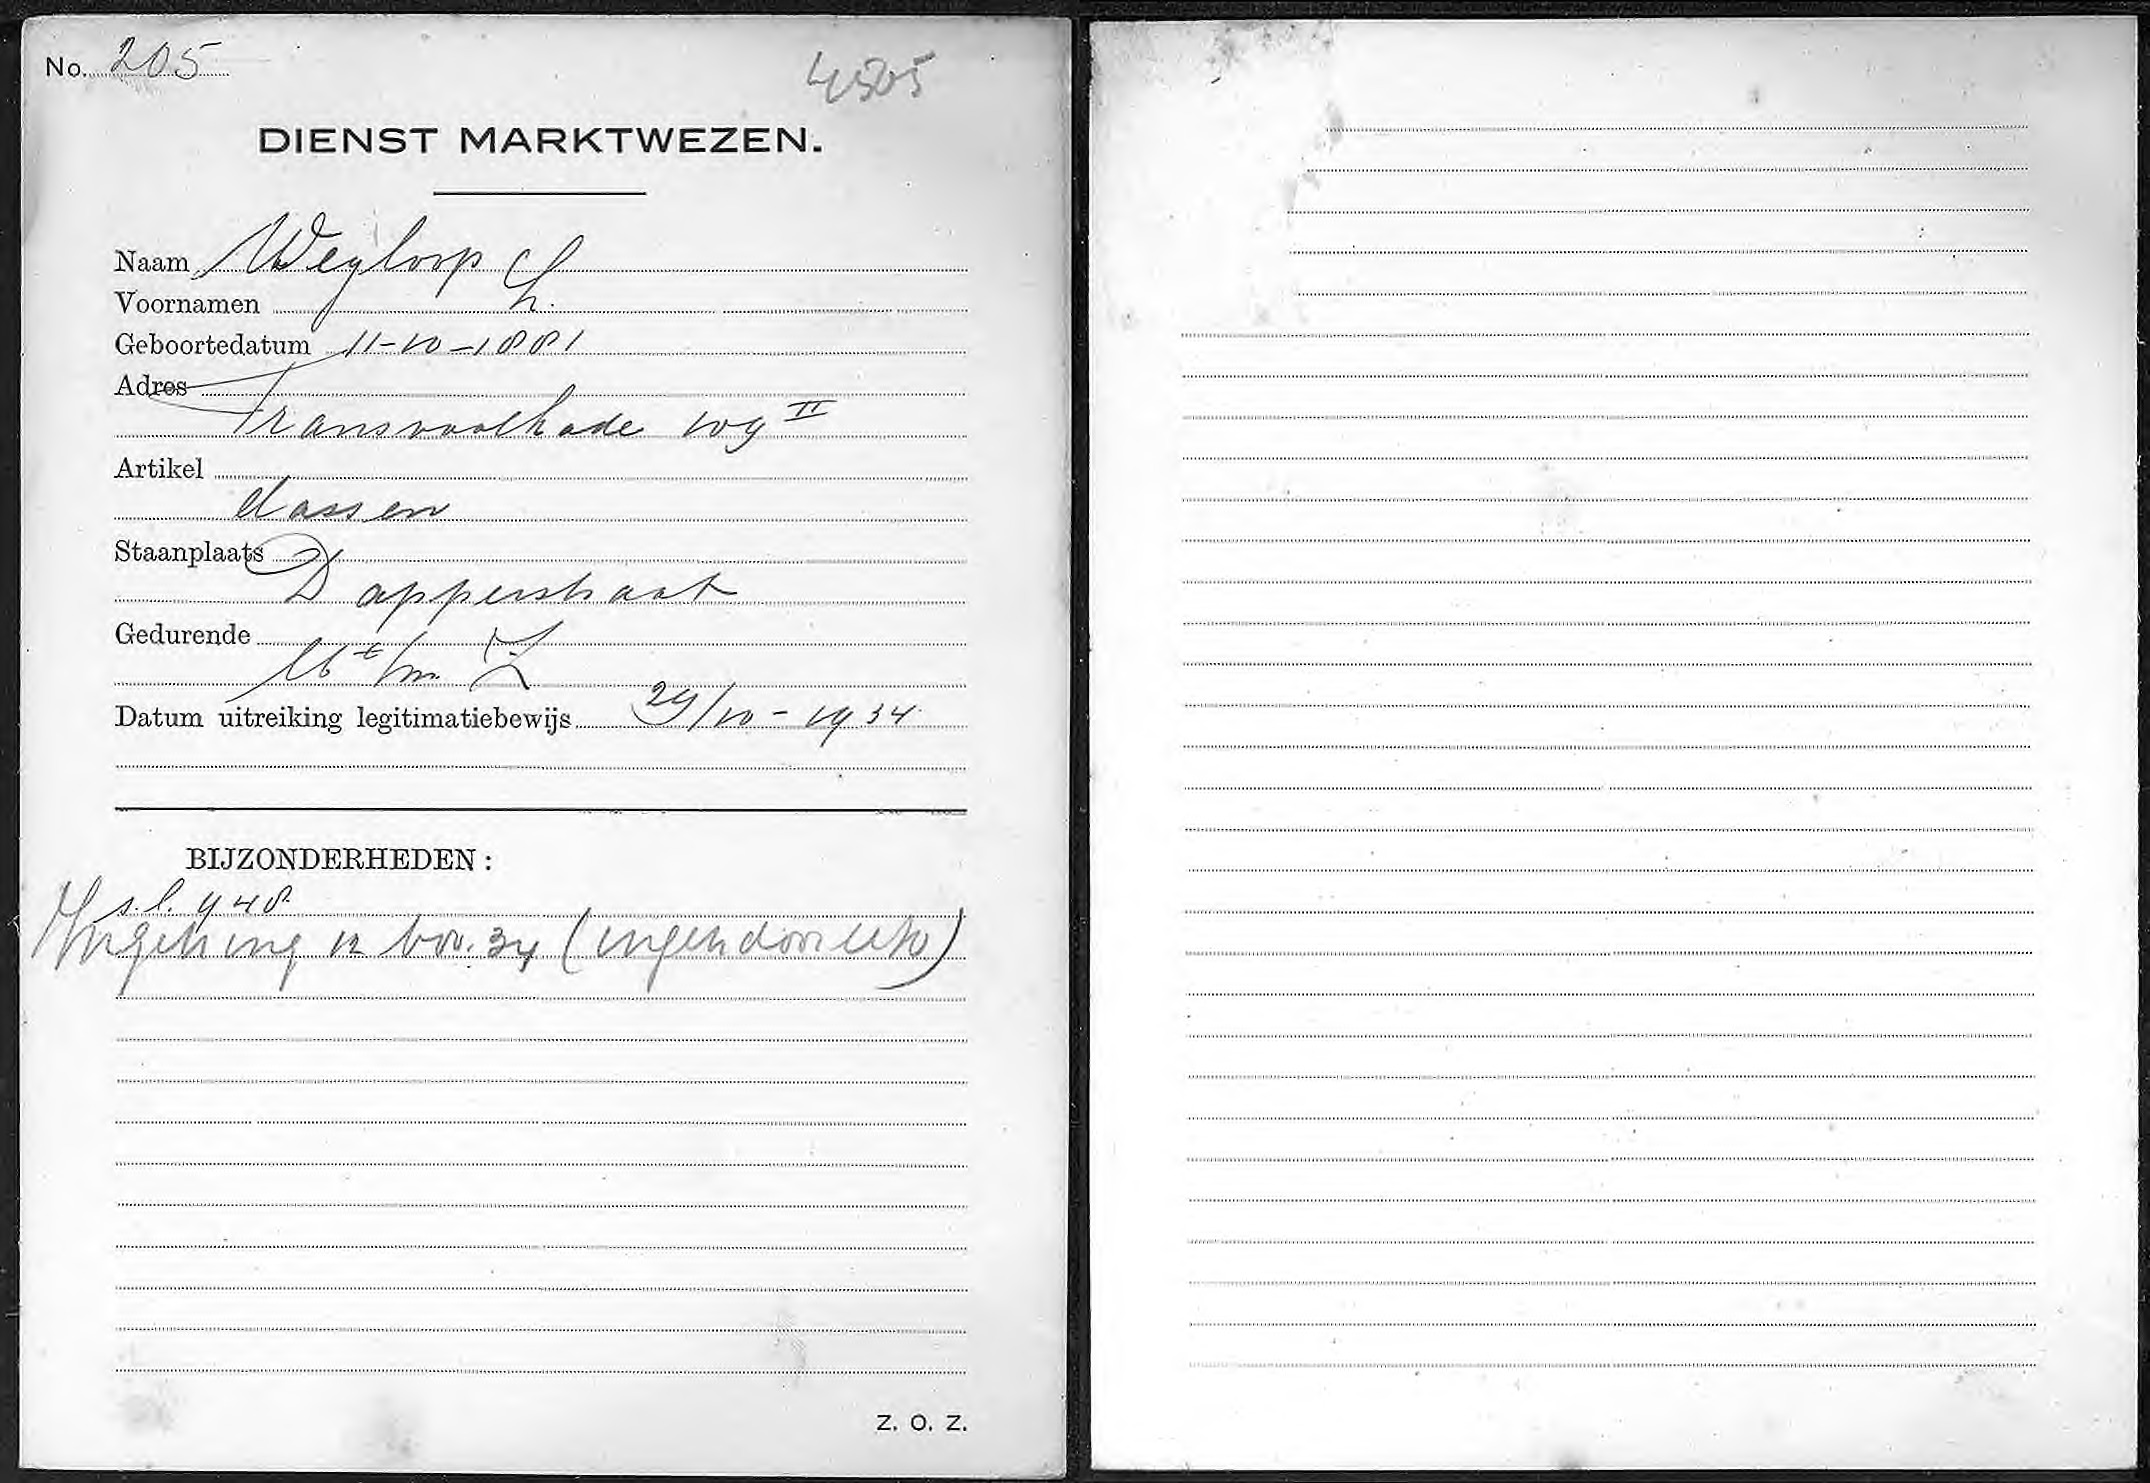 No. 205
4505
DIENST MARKTWEZEN.
Naam Wegloop
Voornamen L.
Geboortedatum 11-10-1881
Adres
Transvaalkade 109 II
Artikel
dassen
Staanplaats
Dapperstraat
Gedurende
M t/m Z
Datum uitreiking legitimatiebewijs 29/10-1934
BIJZONDERHEDEN:
s.l. 948
12 Nov. 34 (
Z. O. Z.